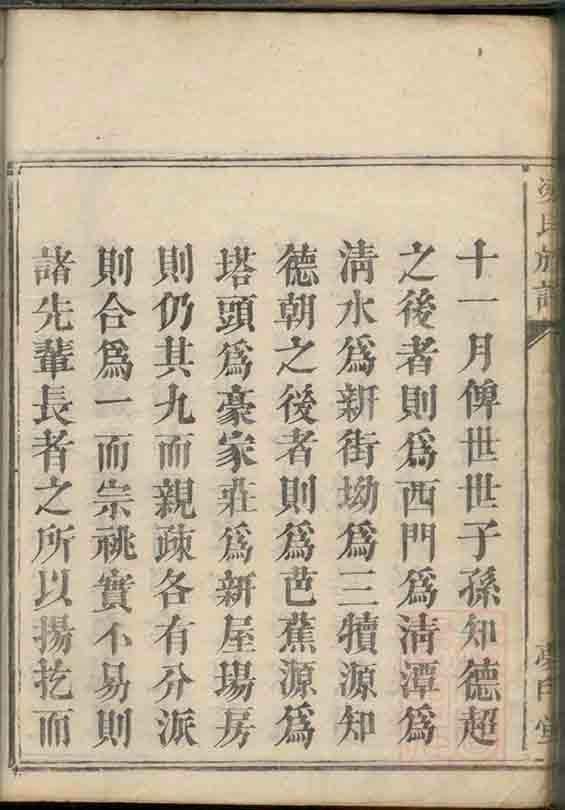 十一月俾世世子孫知德超
之後者則爲西門爲清潭爲
清水爲新街坳爲三犢源知
德朝之後者則爲芭蕉源爲
塔頭爲豪家莊爲新屋場房
則仍其九而親疎各有分派
則合爲一而宗祧實不易則
諸先輩長者之所以揚扢而